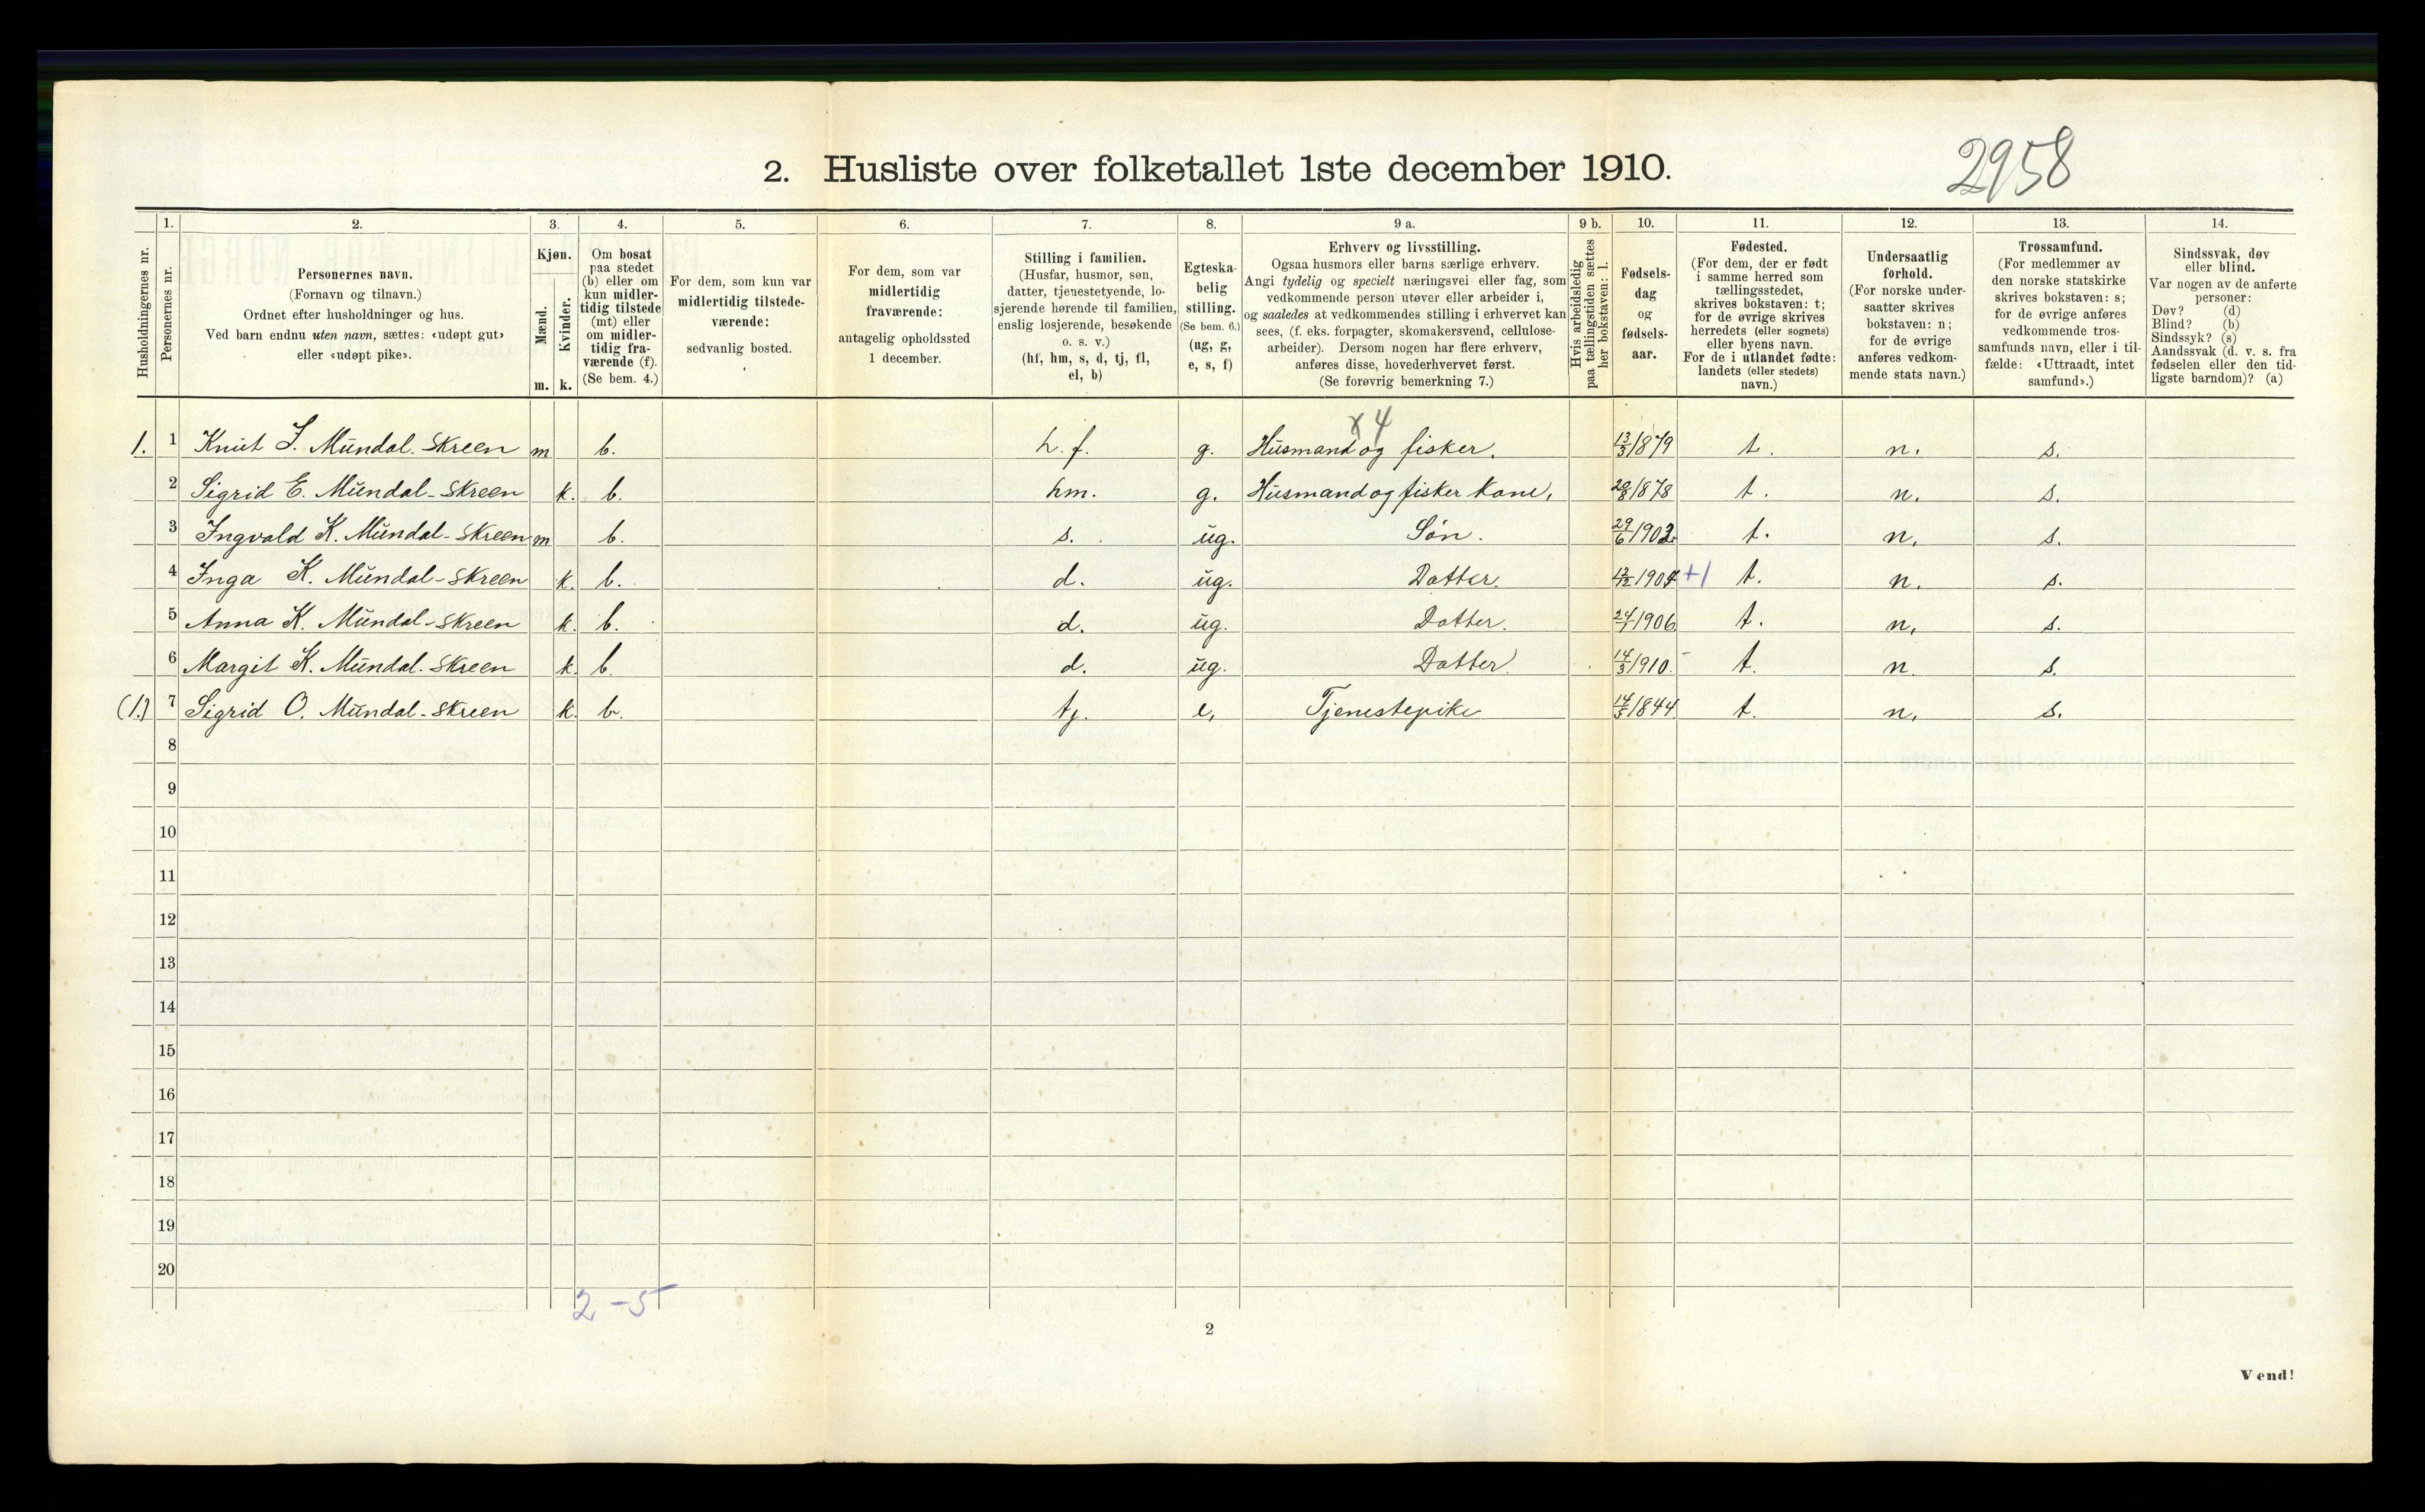 2958
2. Husliste over folketallet 1ste december 1910.
1. 2. 3. 4. 5. 6. 7. 8. 9 a. 9 b. 10. 11. 12. 13. 14.
Husholdningernes nr.
Personernes nr.
Personernes navn.
(Fornavn og tilnavn.)
Ordnet efter husholdninger og hus.
Ved barn endnu uten navn, sættes: «udøpt gut»
eller «udøpt pike».
Kjøn.
Mænd.
Kvinder.
m. k.
Om bosat
paa stedet
(b) eller om
kun midler-
tidig tilstede
(mt) eller
om midler-
tidig fra-
værende (f).
(Se bem. 4.)
For dem, som kun var
midlertidig tilstede-
værende:
sedvanlig bosted.
For dem, som var
midlertidig
fraværende:
antagelig opholdssted
1 december.
Stilling i familien.
(Husfar, husmor, søn,
datter, tjenestetyende, lo-
sjerende hørende til familien,
enslig losjerende, besøkende
o. s. v.)
(hf, hm, s, d, tj, fl,
el, b)
Egteska-
belig
stilling.
(Se bem. 6.)
(ug, g,
e, s, f)
Erhverv og livsstilling.
Ogsaa husmors eller barns særlige erhverv.
Angi tydelig og specielt næringsvei eller fag, som
vedkommende person utøver eller arbeider i,
og saaledes at vedkommendes stilling i erhvervet kan
sees, (f. eks. forpagter, skomakersvend, cellulose-
arbeider). Dersom nogen har flere erhverv,
anføres disse, hovederhvervet først.
(Se forøvrig bemerkning 7.)
Hvis arbeidsledig
paa tællingstiden sættes
her bokstaven: l.
Fødsels-
dag
og
fødsels-
aar.
Fødested.
(For dem, der er født
i samme herred som
tællingsstedet,
skrives bokstaven: t;
for de øvrige skrives
herredets (eller sognets)
eller byens navn.
For de i utlandet fødte:
landets (eller stedets)
navn.)
Undersaatlig
forhold.
(For norske under-
saatter skrives
bokstaven: n;
for de øvrige
anføres vedkom-
mende stats navn.)
Trossamfund.
(For medlemmer av
den norske statskirke
skrives bokstaven: s;
for de øvrige anføres
vedkommende tros-
samfunds navn, eller i til-
fælde: «Uttraadt, intet
samfund».)
Sindssvak, døv
eller blind.
Var nogen av de anførte
personer:
Døv? (d)
Blind? (b)
Sindssyk? (s)
Aandssvak (d. v. s. fra
fødselen eller den tid-
ligste barndom)? (a)
x4
1. 1 Knut I. Mundal-Skreen m b. h.f. g. Husmand og fisker. 13/3 1879 t. n. s.
2 Sigrid E. Mundal-Skreen k. b. hm. g. Husmand og fisker kone, /8 1878 t. n. s.
3 Ingvald K. Mundal-Skreen m b. s. ug. Søn. 29/6 1902 t. n. s.
4 Inga K. Mundal-Skreen k. b. d. ug. Datter. /12 1904 +1 t. n. s.
5 Anna K. Mundal-Skreen k. b. d. ug. Datter. 24/1 1906 t. n. s.
6 Margit K. Mundal-Skreen k. b. d. ug. Datter. 14/3 1910. t. n. s.
(1.) 7 Sigrid O. Mundal-Skreen k. b. tj. e. Tjenestepike 14/5 1844. t. n. s.
8
9
10
11
12
13
14
15
16
17
18
19
20
2-5
2
Vend!